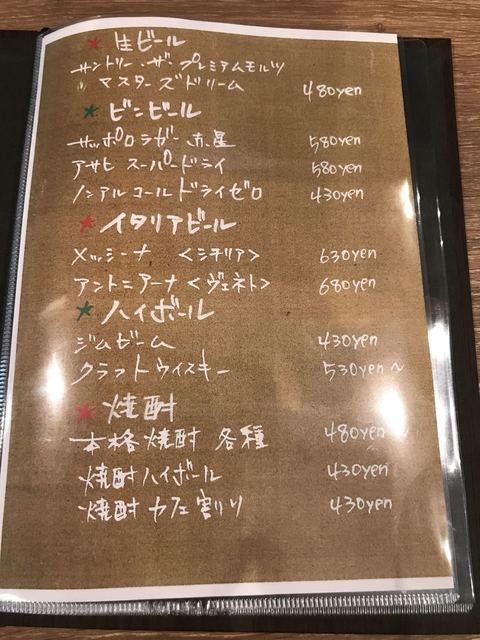 ★ 生ビール
サントリー・ザ・プレミアムモルツ
マスターズドリーム 480yen
★ ビンビール
サッポロラガー 赤星 580yen
アサヒ スーパードライ 580yen
ノンアルコール ドライゼロ 430yen
★ イタリアビール
メッシーナ <シチリア> 630yen
アントニアーナ <ヴェネト> 680yen
★ ハイボール
ジムビーム 430yen
クラフトウイスキー 530yen～
★ 焼酎
本格焼酎 各種 480yen～
焼酎ハイボール 430yen
焼酎カフェ割り 430yen